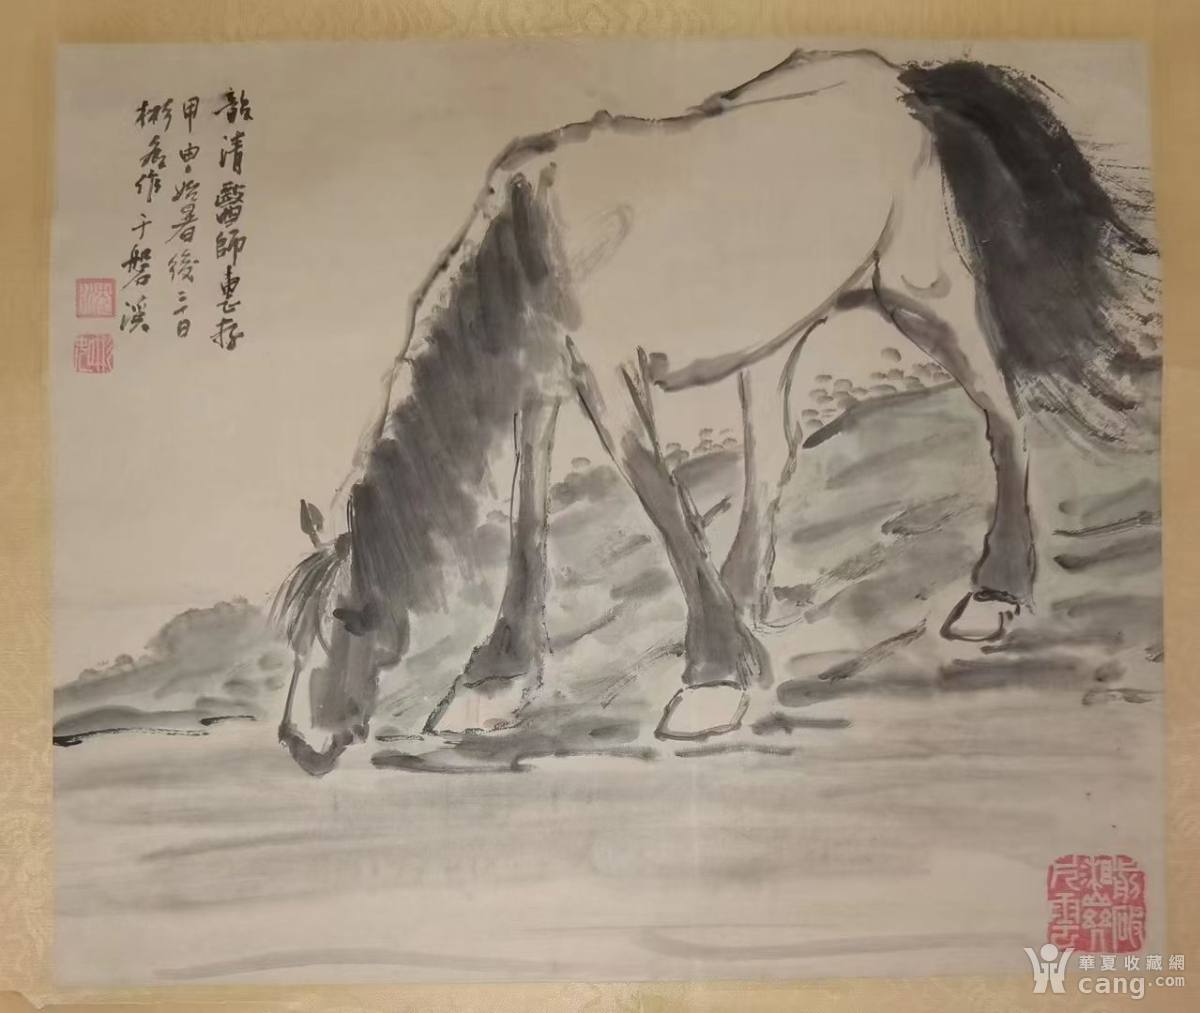 韻清醫師惠存
甲申始暑後二十日
作于磐溪
華夏收藏網
cang.com